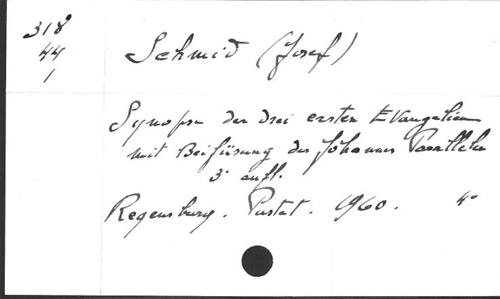 318
44
1
Schmid (Josef)
Synopse der drei ersten Evangelien
mit Beifügung der Johannes Parallelen
3e aufl.
Regensburg. Pustet. 1960. 4°